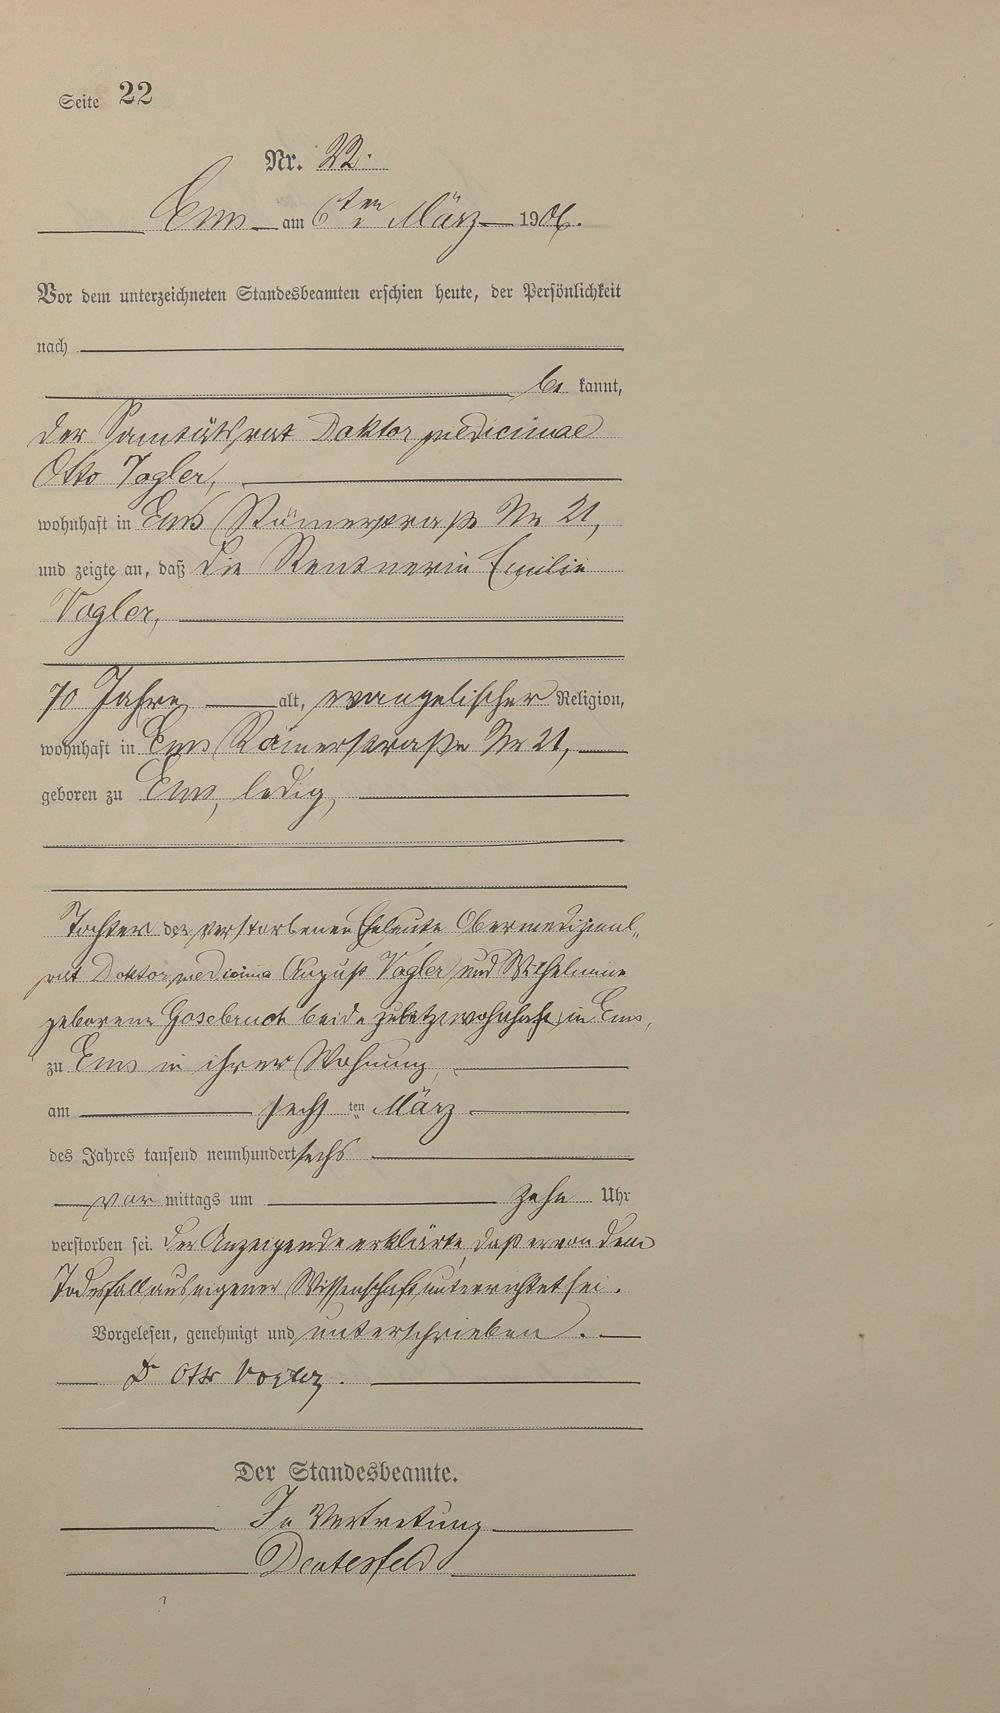 Seite 22
Nr. 22.
Ems am 6ten März 1906.
Vor dem unterzeichneten Standesbeamten erschien heute, der Persönlichkeit
nach
be kannt,
der Sanitätsrat Doktor medicinae
Otto Vogler,
wohnhaft in Ems Römerstraße Nr 21,
und zeigte an, daß die Rentnerin Emilie
Vogler,
70 Jahre alt, evangelischer Religion,
wohnhaft in Ems Römerstraße Nr 21,
geboren zu Ems, ledig,
Tochter der verstorbenen Eheleute Obermedizinal-
rat Doktor medicinae August Vogler und Wilhelmine
geborene Gosebruch beide zuletzt wohnhaft in Ems,
zu Ems in ihrer Wohnung,
am sechs ten März
des Jahres tausend neunhundert sechs
vor mittags um zehn Uhr
verstorben sei. Der Anzeigende erklärte, daß er von dem
Todesfall aus eigener Wissenschaft unterrichtet sei.
Vorgelesen, genehmigt und unterschrieben.
Dr Otto Vogler.
Der Standesbeamte.
In Vertretung